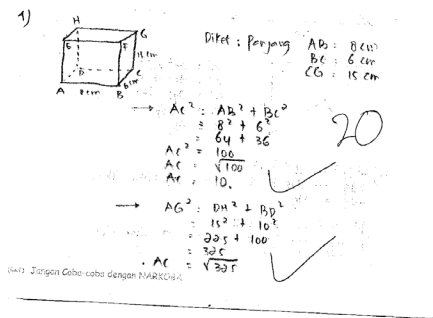 1)
H G
E F
15 cm
D C
6 cm
A 8 cm B
Diket : Panjang AB : 8 cm
BC : 6 cm
CG : 15 cm
→ AC² : AB² + BC²
= 8² + 6²
= 64 + 36
AC² = 100
AC = √100
AC = 10.
20
→ AG² : DH² + BD²
= 15² + 10²
= 225 + 100
= 325
. AC = √325
Jangan Coba-coba dengan NARKOBA